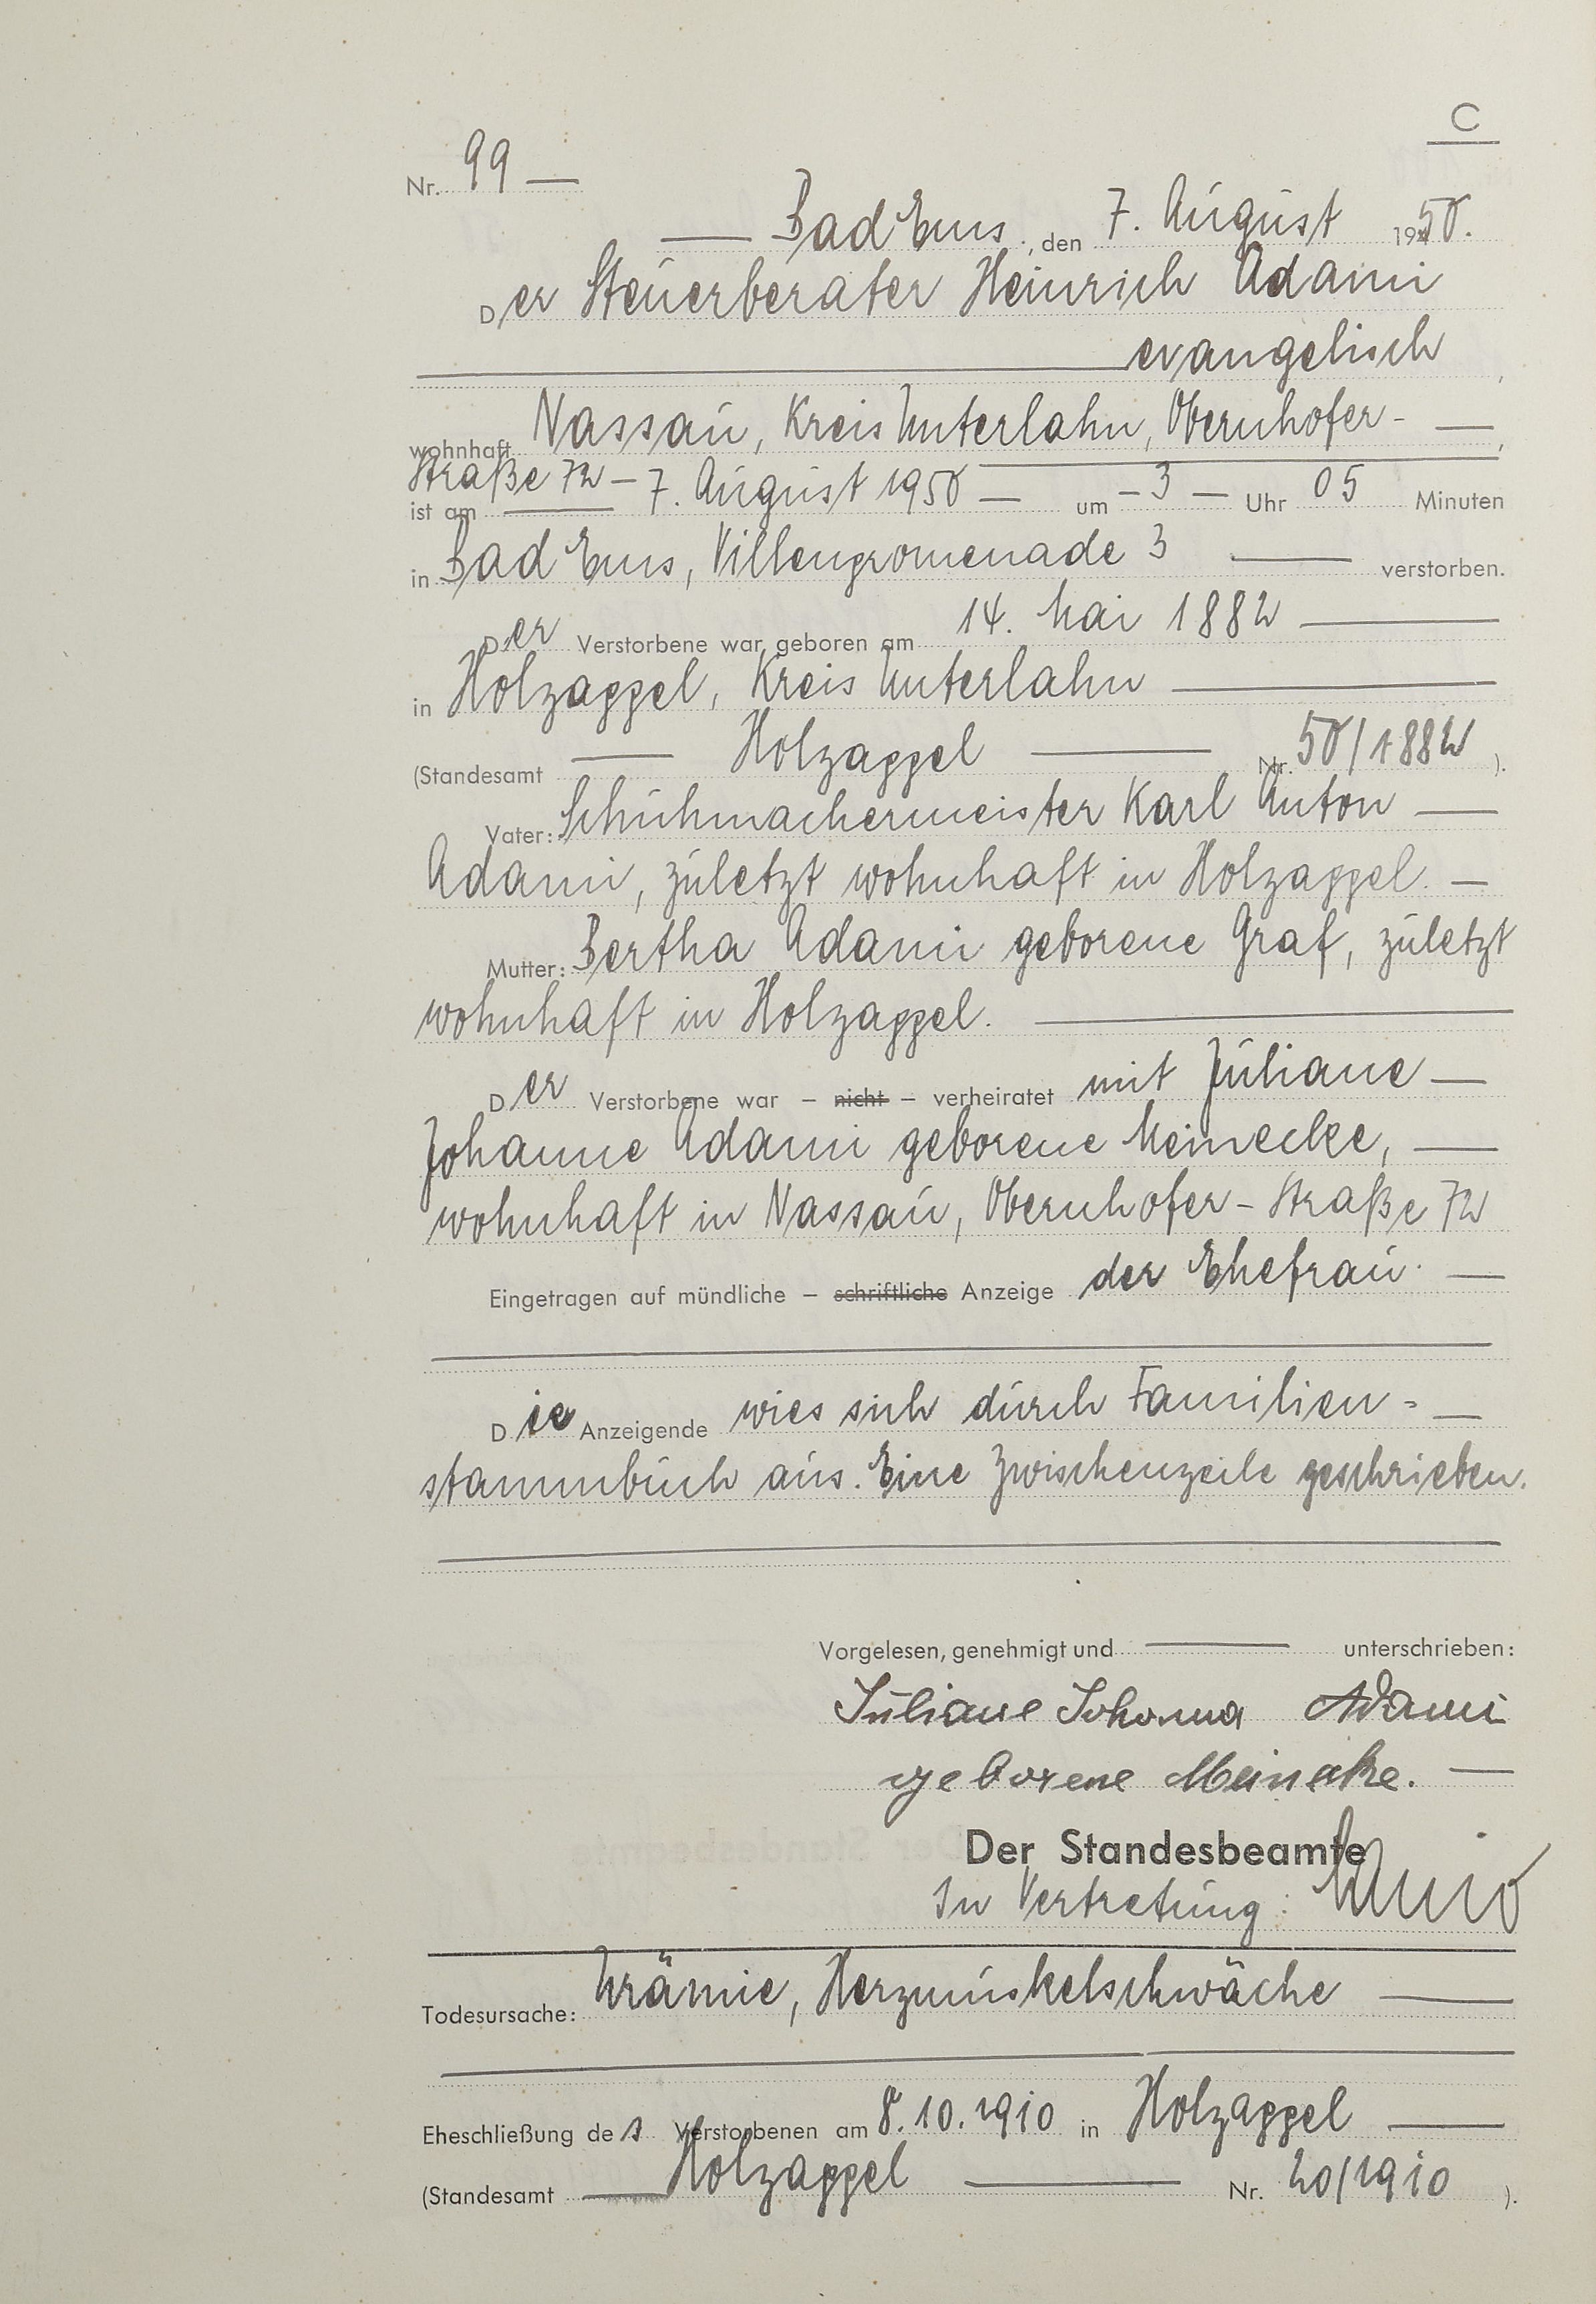 C
Nr. 99 —
— Bad Ems, den 7. August 1950.
Der Steuerberater Heinrich Adami
evangelisch
wohnhaft Nassau, Kreis Unterlahn, Obernhofer- —
Straße 72 —
ist am — 7. August 1950 — um – 3 — Uhr 05 Minuten
in Bad Ems, Villenpromenade 3 — verstorben.
Der Verstorbene war geboren am 14. Mai 1882 —
in Holzappel, Kreis Unterlahn —
(Standesamt — Holzappel — Nr. 50/1882 ).
Vater: Schuhmachermeister Karl Anton —
Adami, zuletzt wohnhaft in Holzappel. —
Mutter: Bertha Adami geborene Graf, zuletzt
wohnhaft in Holzappel. —
Der Verstorbene war – nicht – verheiratet mit Juliane —
Johanne Adami geborene Meinecke, —
wohnhaft in Nassau, Obernhofer-Straße 72
Eingetragen auf mündliche – schriftliche Anzeige der Ehefrau. —
Die Anzeigende wies sich durch Familien- —
stammbuch aus. Eine Zwischenzeile geschrieben.
Vorgelesen, genehmigt und — unterschrieben:
Juliane Johanna Adami
geborene Meinecke. —
Der Standesbeamte
In Vertretung:
Todesursache: Urämie, Herzmuskelschwäche —
Eheschließung des Verstorbenen am 8.10.1910 in Holzappel —
(Standesamt — Holzappel — Nr. 20/1910 ).